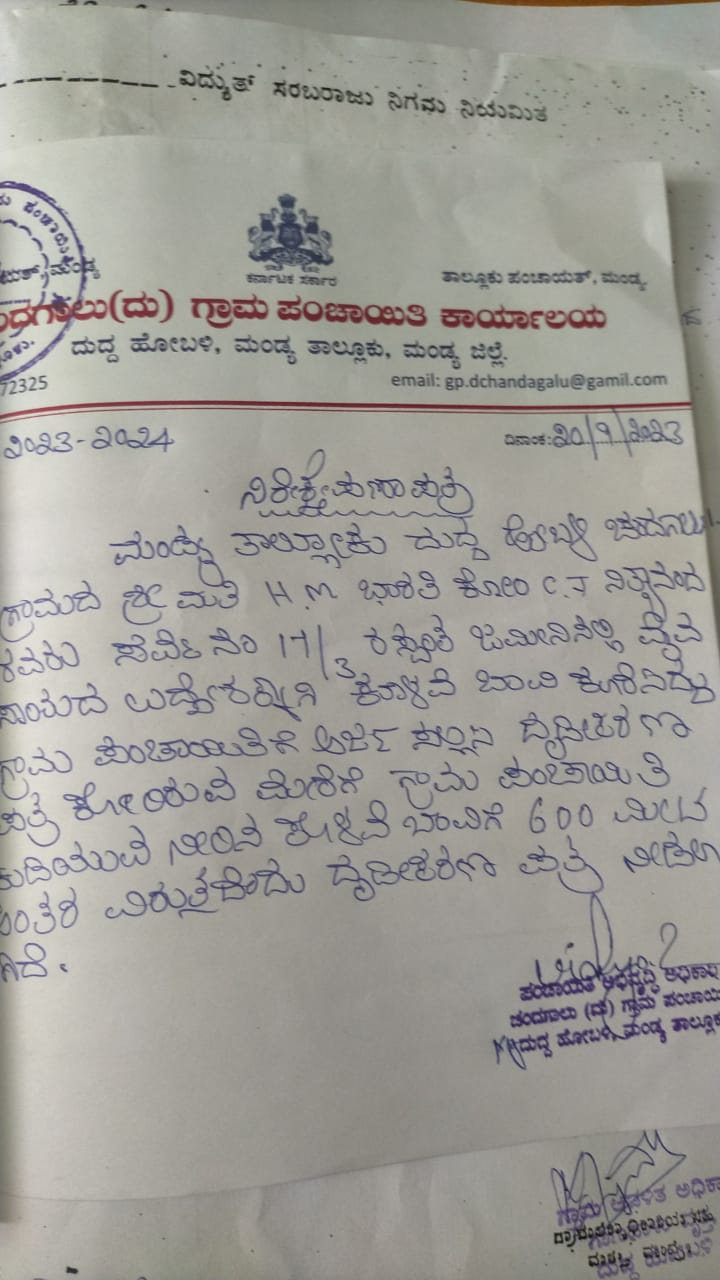 ವಿದ್ಯುತ್ ಸರಬರಾಜು ನಿಗಮ ನಿಯಮಿತ
ಕರ್ನಾಟಕ ಸರ್ಕಾರ
ತಾಲ್ಲೂಕು ಪಂಚಾಯತ್, ಮಂಡ್ಯ
ಗಾಲು(ದು) ಗ್ರಾಮ ಪಂಚಾಯಿತಿ ಕಾರ್ಯಾಲಯ
ದುದ್ದ ಹೋಬಳಿ, ಮಂಡ್ಯ ತಾಲ್ಲೂಕು, ಮಂಡ್ಯ ಜಿಲ್ಲೆ.
72325
email: gp.dchandagalu@gamil.com
2023-2024
ದಿನಾಂಕ: 20/9/2023
ನಿರೀಕ್ಷೇಪಣಾ ಪತ್ರ
ಮಂಡ್ಯ ತಾಲ್ಲೂಕು ದುದ್ದ ಹೋಬಳಿ ಚಂದಗಾಲು
ಗ್ರಾಮದ ಶ್ರೀಮತಿ H.M ಭಾರತಿ ಕೋಂ C.J ನಿತ್ಯಾನಂದ
ರವರು ಸರ್ವೆ ನಂ 17/3 ರ ಜಮೀನಿನಲ್ಲಿ ವ್ಯವ
ಸಾಯದ ಕೊಳವೆ ಬಾವಿ
ಗ್ರಾಮ ಪಂಚಾಯಿತಿಗೆ ಅರ್ಜಿ ದೃಢೀಕರಣ
ಪತ್ರ ಕೋರಿರುವ ಮೇರೆಗೆ ಗ್ರಾಮ ಪಂಚಾಯಿತಿ
ಕುಡಿಯುವ ನೀರಿನ ಕೊಳವೆ ಬಾವಿಗೆ 600 ಮೀಟ
ಅಂತರ ವಿರುತ್ತದೆಂದು ದೃಢೀಕರಣ ಪತ್ರ ನೀಡಲಾ
ಗಿದೆ.
ಪಂಚಾಯತ ಅಭಿವೃದ್ಧಿ ಅಧಿಕಾರಿ
ಚಂದಗಾಲು (ದು) ಗ್ರಾಮ ಪಂಚಾಯ
ದುದ್ದ ಹೋಬಳಿ, ಮಂಡ್ಯ ತಾಲ್ಲೂಕು
ಗ್ರಾಮ ಆಡಳಿತ ಅಧಿಕಾ